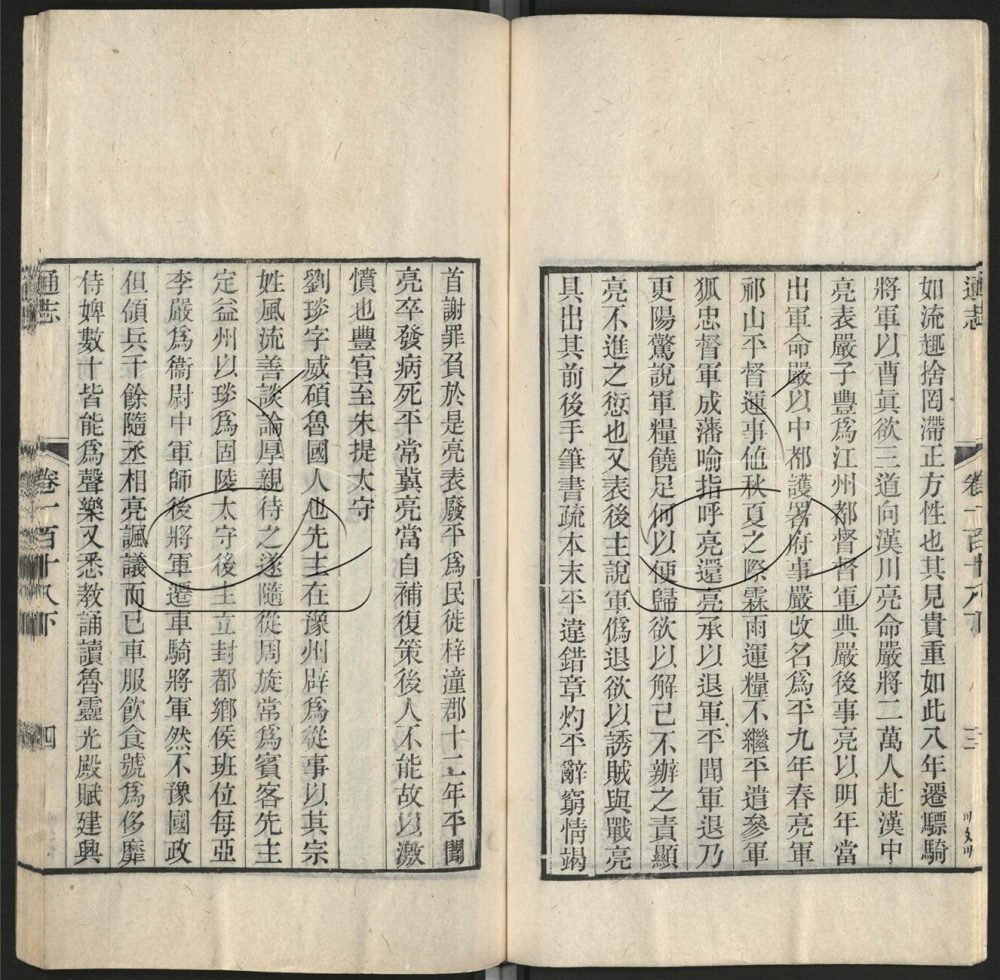 通志
卷一百十八下
三
如流趣捨罔滯正方性也其見貴重如此八年遷驃騎
將軍以曹眞欲三道向漢川亮命嚴將二萬人赴漢中
亮表嚴子豐爲江州都督督軍典嚴後事亮以明年當
出軍命嚴以中都護署府事嚴改名爲平九年春亮軍
祁山平督運事値秋夏之際霖雨運糧不繼平遣參軍
狐忠督軍成藩喻指呼亮還亮承以退軍平聞軍退乃
更陽驚說軍糧饒足何以便歸欲以解己不辦之責顯
亮不進之愆也又表後主說軍僞退欲以誘賊與戰亮
具出其前後手筆書疏本末平違錯章灼平辭窮情竭
首謝罪負於是亮表廢平爲民徙梓潼郡十二年平聞
亮卒發病死平常冀亮當自補復策後人不能故以激
憤也豐官至朱提太守
劉琰字威碩魯國人也先主在豫州辟爲從事以其宗
姓風流善談論厚親待之遂隨從周旋常爲賓客先主
定益州以琰爲固陵太守後主立封都鄉侯班位每亞
李嚴爲衞尉中軍師後將軍遷車騎將軍然不豫國政
但領兵千餘隨丞相亮諷議而已車服飲食號爲侈靡
侍婢數十皆能爲聲樂又悉教誦讀魯靈光殿賦建興
通志
卷一百十八下
四